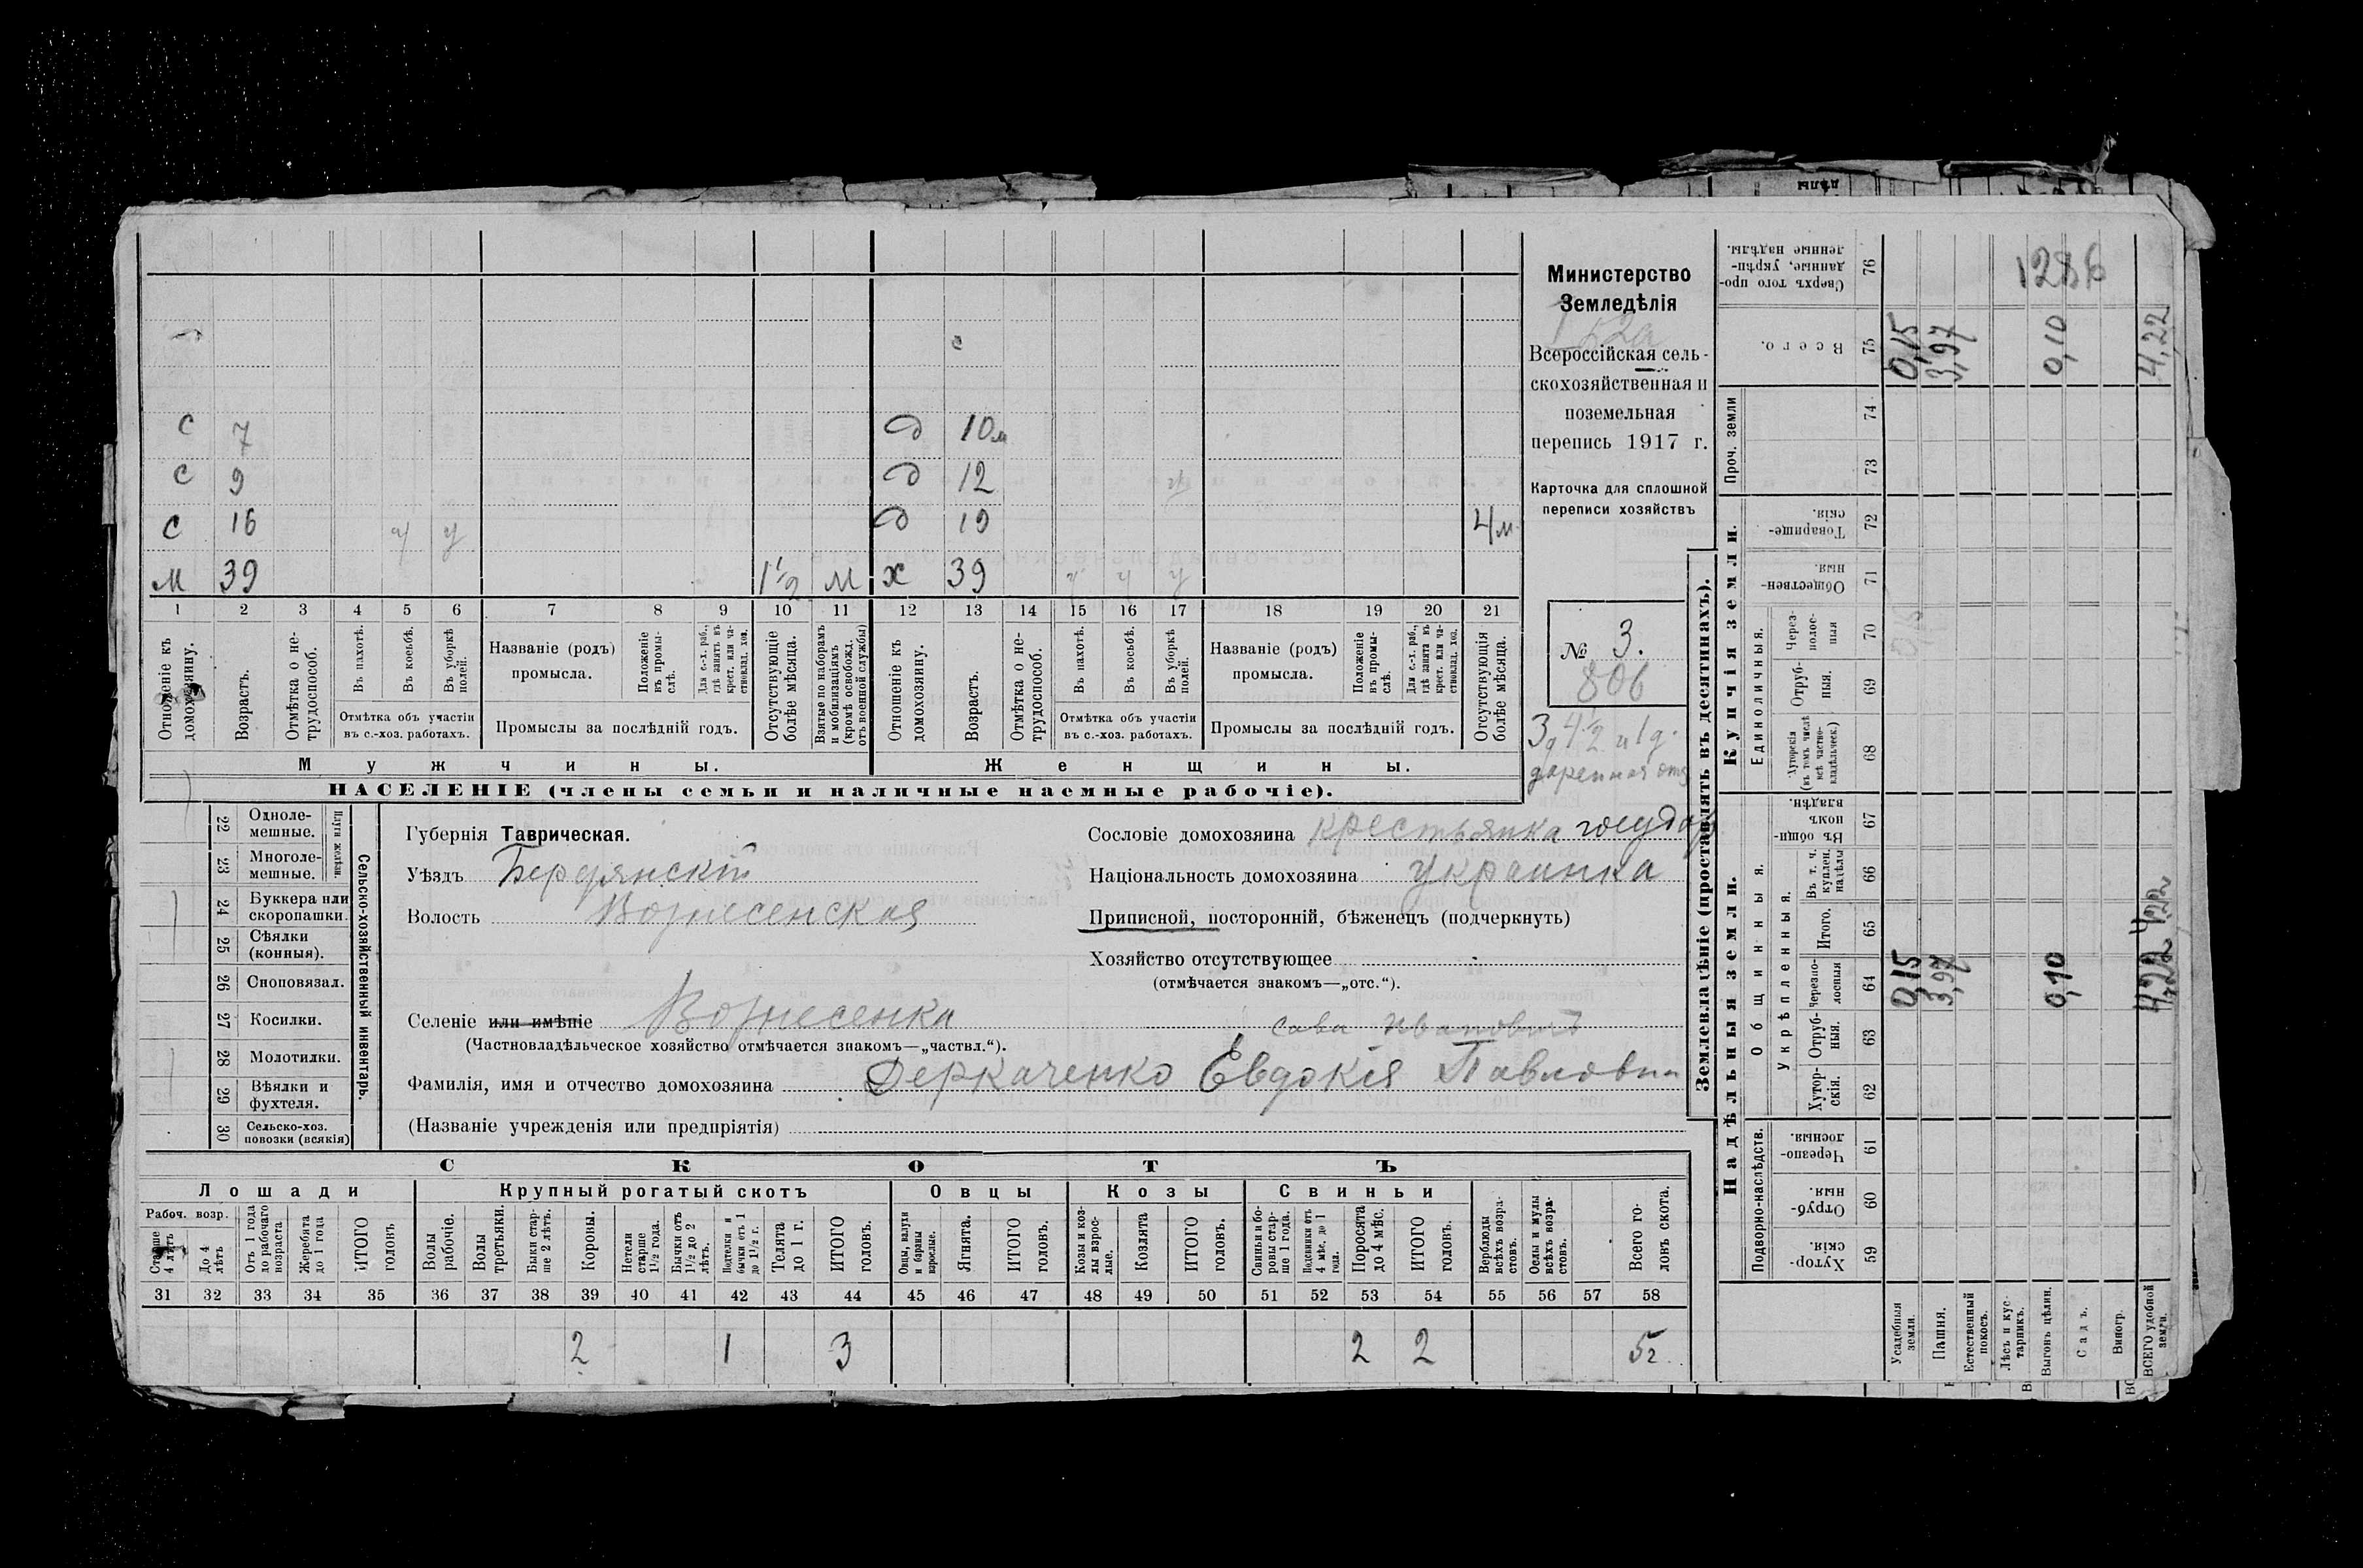 Министерство
Земледѣлія
Всероссійская сель-
скохозяйственная и
поземельная
перепись 1917 г.
Карточка для сплошной
переписи хозяйствъ
№ 3.
806
с
с 7 д 10м
с 9 д 12
с 16 ч у д 19 4м
м 39 1½ м ж 39 ч ч у
1 2 3 4 5 6 7 8 9 10 11 12 13 14 15 16 17 18 19 20 21
Отношеніе къ домохозяину.
Возрастъ.
Отмѣтка о не-трудоспособ.
Въ пахотѣ.
Въ косьбѣ.
Въ уборкѣ полей.
Отмѣтка объ участіи въ с.-хоз. работахъ.
Названіе (родъ) промысла.
Положеніе въ промы-слѣ.
Для с.-х. раб., гдѣ занятъ въ крест. или ча-стновлад. хоз.
Промыслы за послѣдній годъ.
Отсутствующіе болѣе мѣсяца.
Взятые по наборамъ и мобилизаціямъ (кромѣ освобожд. отъ военной службы)
Отношеніе къ домохозяину.
Возрастъ.
Отмѣтка о не-трудоспособ.
Въ пахотѣ.
Въ косьбѣ.
Въ уборкѣ полей.
Отмѣтка объ участіи въ с.-хоз. работахъ.
Названіе (родъ) промысла.
Положеніе въ промы-слѣ.
Для с.-х. раб., гдѣ занята въ крест. или ча-стновлад. хоз.
Промыслы за послѣдній годъ.
Отсутствующія болѣе мѣсяца.
Мужчины. Женщины.
НАСЕЛЕНІЕ (члены семьи и наличные наемные рабочіе).
22 Одноле-мешные.
23 Многоле-мешные.
Плуги желѣзн.
24 Буккера или скоропашки.
25 Сѣялки (конныя).
26 Сноповязал.
27 Косилки.
28 Молотилки.
29 Вѣялки и фухтеля.
30 Сельско-хоз. повозки (всякія)
Сельско-хозяйственный инвентарь.
Губернія Таврическая.
Уѣздъ Бердянскій
Волость Вознесенская
Селеніе или имѣніе Вознесенка
(Частновладѣльческое хозяйство отмѣчается знакомъ—„частвл.“).
Сословіе домохозяина крестьянка государ
Національность домохозяина украинка
Приписной, посторонній, бѣженецъ (подчеркнуть)
Хозяйство отсутствующее
(отмѣчается знакомъ—„отс.“).
Сава Ивановичъ
Фамилія, имя и отчество домохозяина Деркаченко Евдокія Павловна
(Названіе учрежденія или предпріятія)
СКОТЪ
Лошади Крупный рогатый скотъ Овцы Козы Свиньи
Рабоч. возр.
Старше 4 лѣтъ
До 4 лѣтъ
Отъ 1 года до рабочаго возраста
Жеребята до 1 года
ИТОГО головъ
Волы рабочіе.
Волы третьяки.
Быки стар-ше 2 лѣтъ.
Коровы.
Нетели старше 1½ года.
Бычки отъ 1½ до 2 лѣтъ.
Подтелки и бычки отъ 1 до 1½ г.
Телята до 1 г.
ИТОГО головъ.
Овцы, валухи и бараны взрослые.
Ягнята.
ИТОГО головъ.
Козы и коз-лы взрос-лые.
Козлята
ИТОГО головъ.
Свиньи и бо-ровы стар-ше 1 года.
Подсвинки отъ 4 мѣс. до 1 года.
Поросята до 4 мѣс.
ИТОГО головъ.
Верблюды всѣхъ возра-стовъ.
Ослы и мулы всѣхъ возра-стовъ.
Всего го-ловъ скота.
31 32 33 34 35 36 37 38 39 40 41 42 43 44 45 46 47 48 49 50 51 52 53 54 55 56 57 58
2 1 3 2 2 5
Землевладѣніе (проставлять въ десятинахъ).
Надѣльныя земли. Купчія земли.
Подворно-наслѣдств. Общинныя. Укрѣпленныя. Единоличныя. Проч. земли
Хутор-скія. 59
Отруб-ныя. 60
Черезпо-лосныя. 61
Хутор-скія. 62
Отруб-ныя. 63
Черезпо-лосныя 64
Итого. 65
Въ т. ч. куплен. надѣлы 66
Въ общи-номъ владѣн. 67
Хуторскія (въ томъ числѣ всѣ частно-владѣльческ.) 68
Отруб-ныя. 69
Через-полос-ныя 70
Обществен-ныя. 71
Товарище-скія. 72
73
74
Всего. 75
Сверхъ того про-данные, укрѣп-ленные надѣлы. 76
Усадебныя земли. 0,15 0,15
Пашня. 3,97 3,97
Естественный покосъ.
Лѣсъ и кус-тарникъ.
Выгонъ цѣлин. 0,10 0,10
Садъ.
Виногр.
ВСЕГО удобной земли. 4,22 4,22 4,22